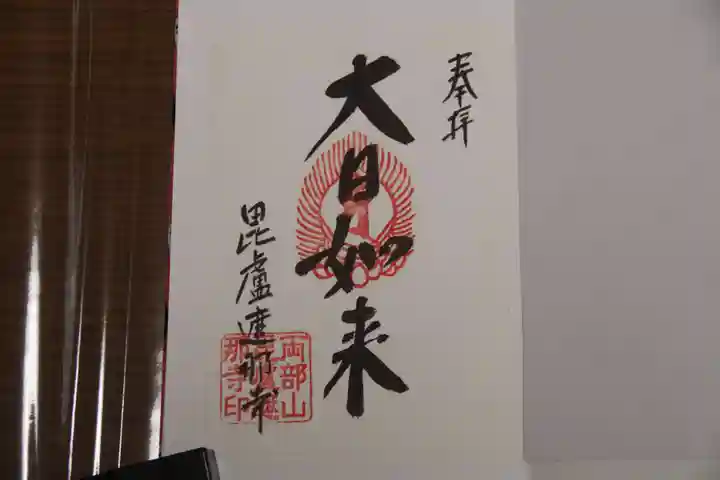 奉拝
大日如来
毘盧遮那寺
両部山
那寺印